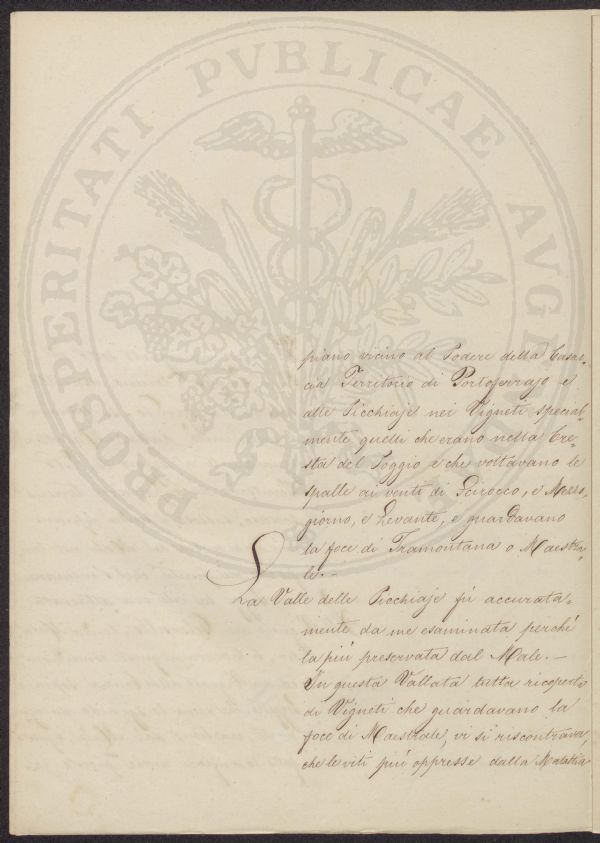 PROSPERITATI PVBLICAE AVGENDAE
piano vicino al Podere della Casac=
cia Territorio di Portoferrajo e
alle Picchiaje nei Vigneti special=
mente quelli che erano nella Cre=
sta del Poggio e che voltavano le
spalle ai venti di Scirocco, e Mezzo=
giorno, e Levante, e guardavano
la foce di Tramontana o Maestra=
le.—
La Valle delle Picchiaje fù accurata=
mente da me esaminata perché
la più preservata dal Male.—
In questa Vallata tutta ricoperta
di Vigneti che guardavano la
foce di Maestrale, vi si riscontrava,
che le viti più oppresse dalla Malattia